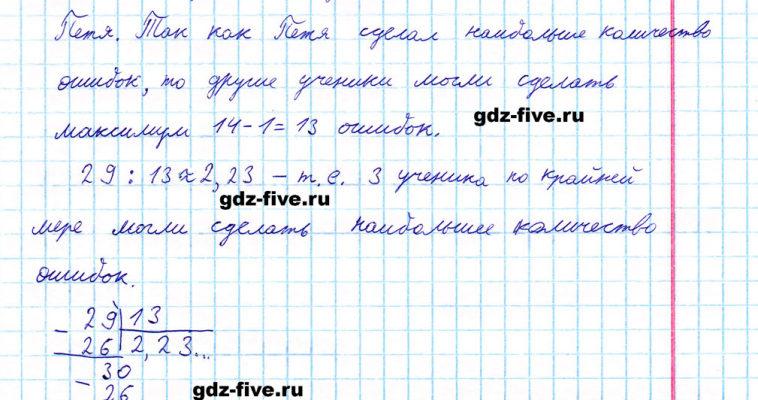 Петя. Так как Петя сделал наибольшее количество
ошибок, то другие ученики могли сделать
максимум 14-1=13 ошибок.
gdz-five.ru
29 : 13 ≈ 2,23 – т.е. 3 ученика по крайней
gdz-five.ru
мере могли сделать наибольшее количество
ошибок.
- 29 | 13
26 | 2,23...
- 30
26
gdz-five.ru